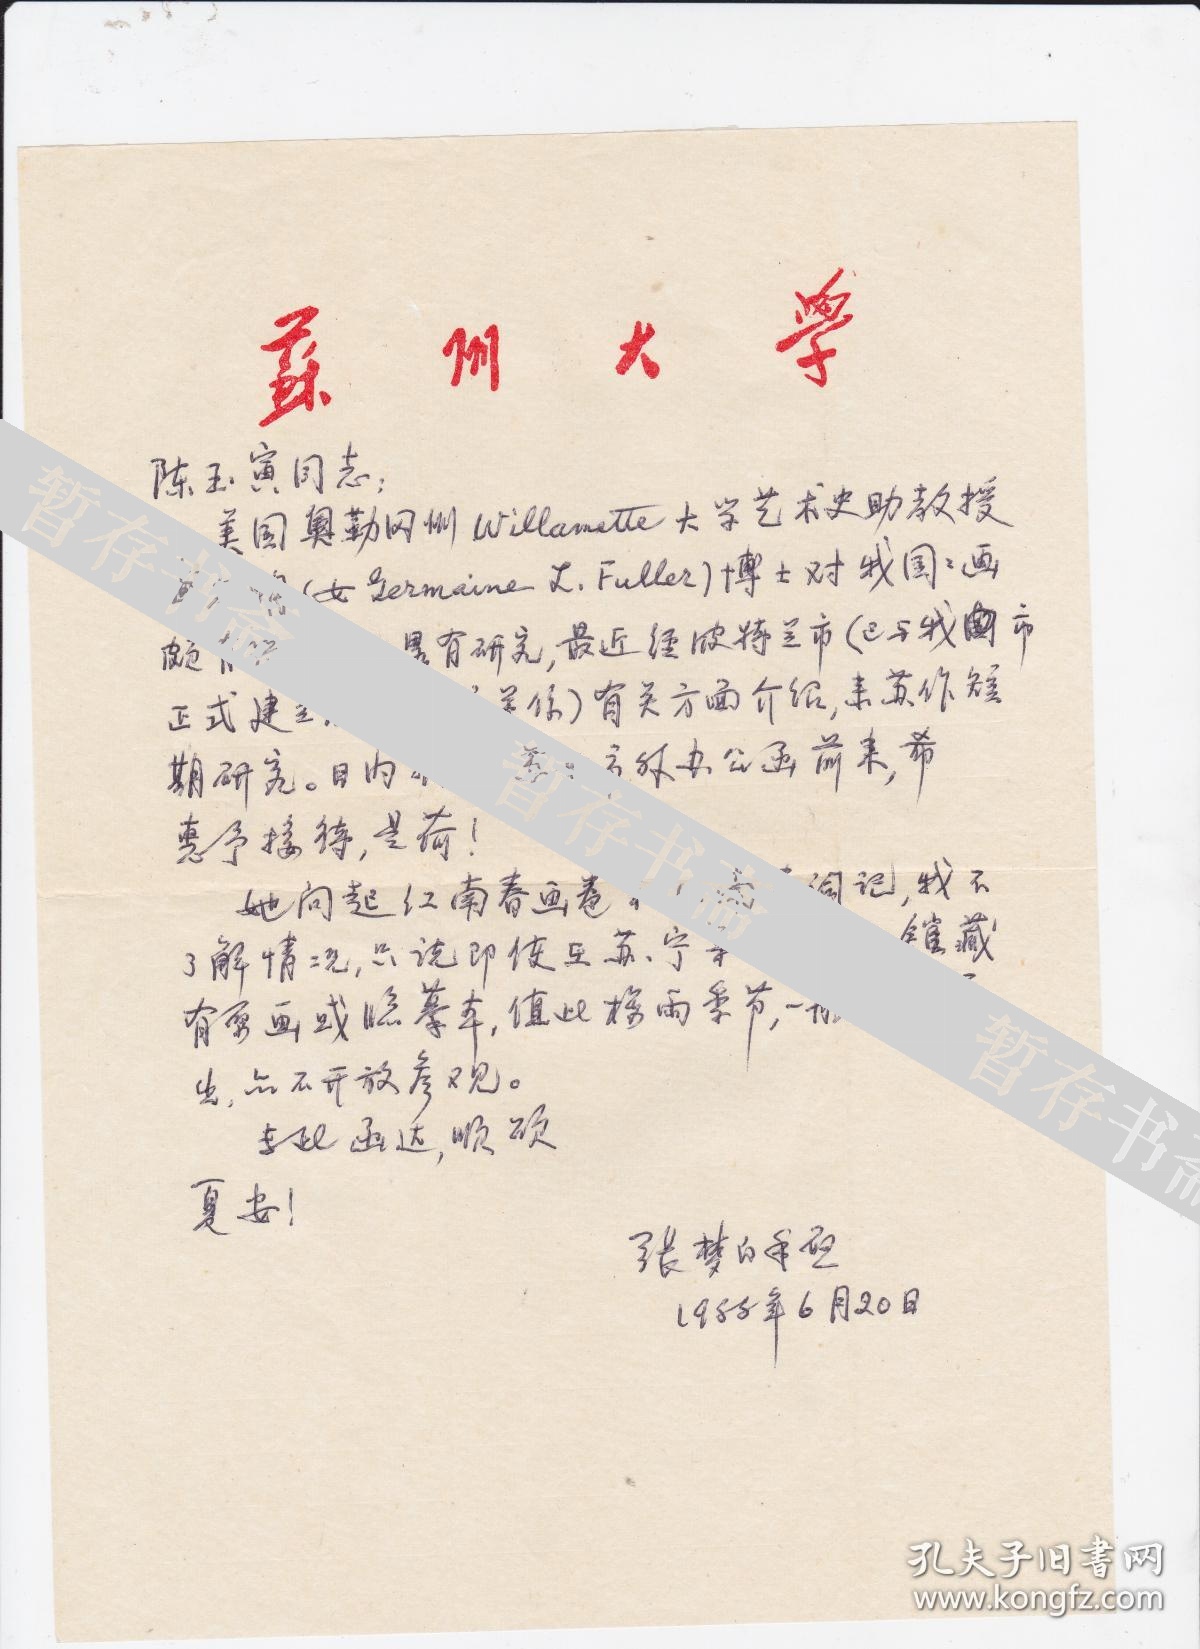 蘇州大學
陈玉寅同志:
美国奥勒冈州 Willamette 大学艺术史助教授
(女 Germaine L. Fuller)博士对我国画
颇有研究,最近经波特兰市(已与我市
正式建立关係)有关方面介绍,来苏作短
期研究。日内外办公函前来,希
惠予接待,是荷!
她问起江南春画卷词记,我不
了解情况,只说即使在苏、宁馆藏
有原画或临摹本,值此梅雨季节,一般
出,亦不开放参观。
专此函达,顺颂
夏安!
张梦白手啟
1988年6月20日
暂存书斋
暂存书斋
暂存书斋
孔夫子旧書网
www.kongfz.com